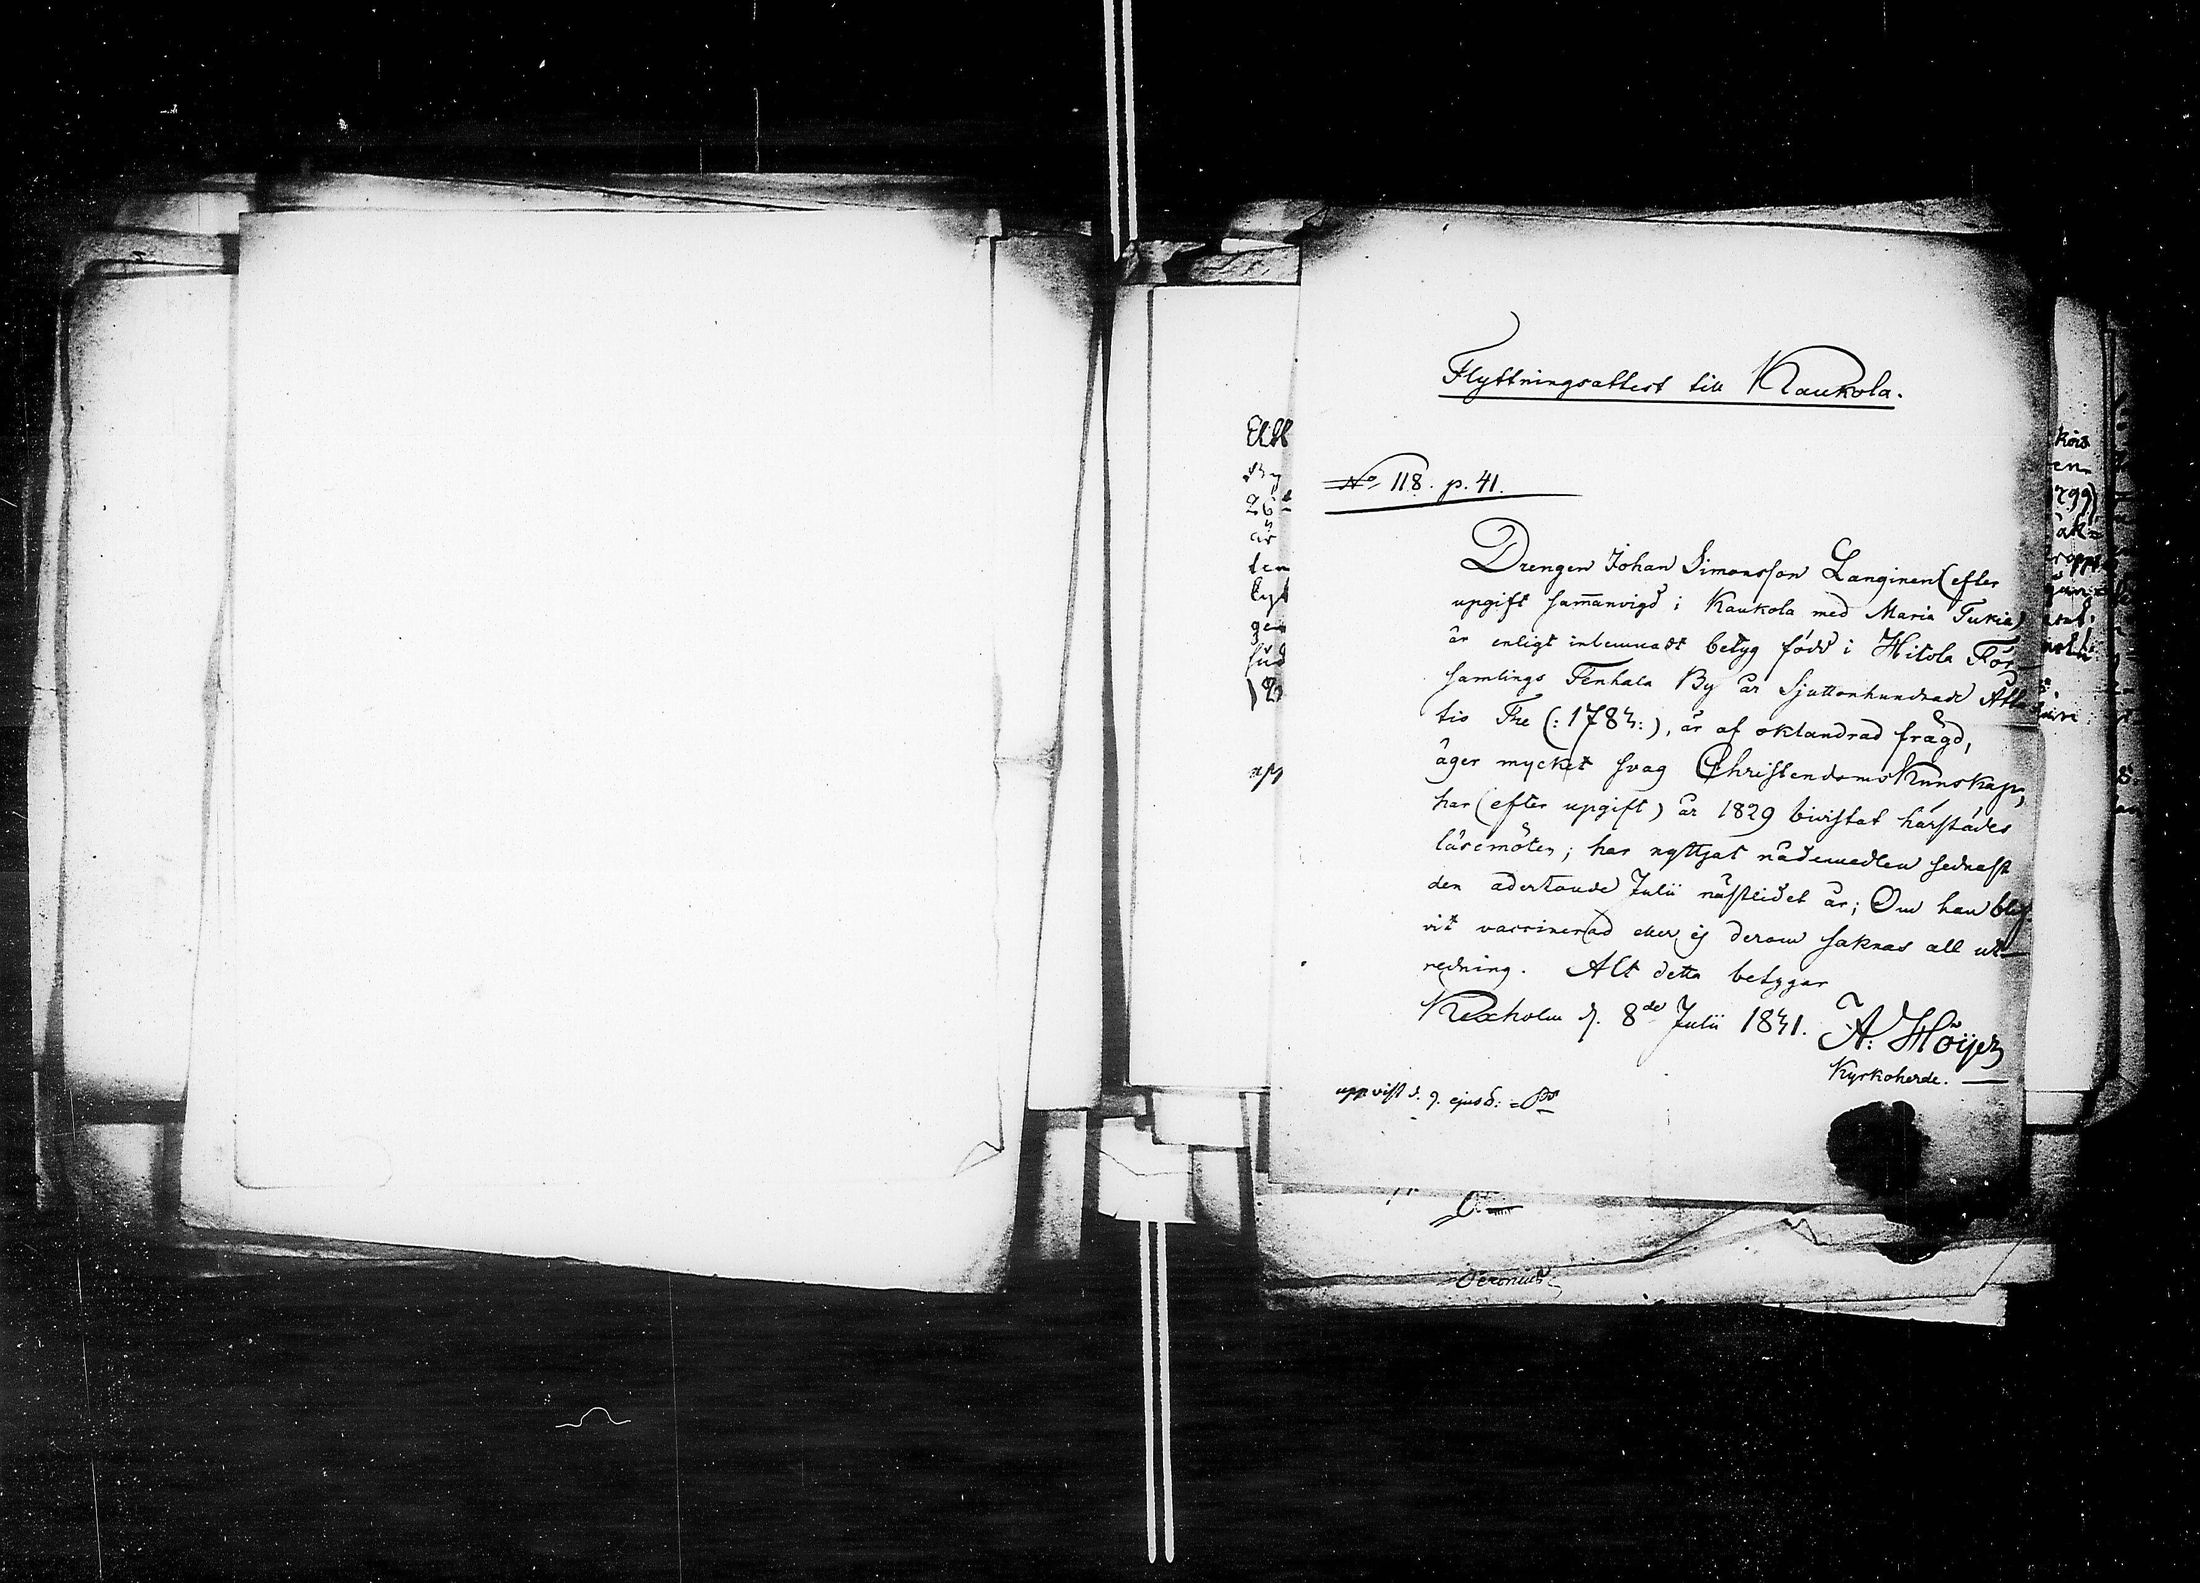 Flyttningsattest till Kaukola.
No 118. p. 41.
Drengen Johan Simonsson Langinen (efter
upgift sam̄anvigd i Kaukola med Maria Tukia)
är enligt inlemnadt betyg född i Hitola För-
samlings Tenhala By år Sjuttonhundrade Åtta
tio Tre (: 1783 :), är af oklandrad frägd,
äger mycket svag Christendoms Kunskap,
har (efter upgift) år 1829 bivistat härstädes
läsemöten; har nyttjat nådemedlen sednast
den adertonde Julii nästlidet år; Om han blif-
vit vaccinerad eller ej derom saknas all ut-
redning. Alt detta betygar
Kexholm d. 8de Julii 1831. A: Höijer
Kyrkoherde.
uppvist d. 9. ejusd: